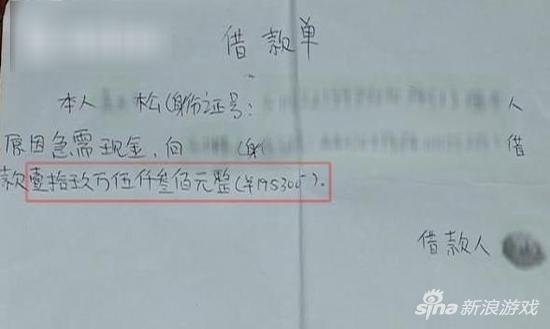 借款单
本人 松(身份证号: 人
原因急需现金,向 (身 借
款壹拾玖万伍仟叁佰元整(¥195300).
借款人
sina 新浪游戏